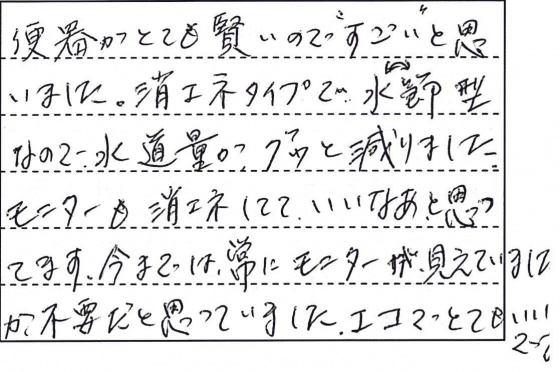 便器がとても賢いのですごい"と思
いました。消エネタイプで、水節型
なので、水道量が、グッと減りました。
モニターも消エネしてて、いいなあと思っ
てます、今までは、常にモニターが、見えていました
が、不要だと思っていました、エコでとてもいい
です